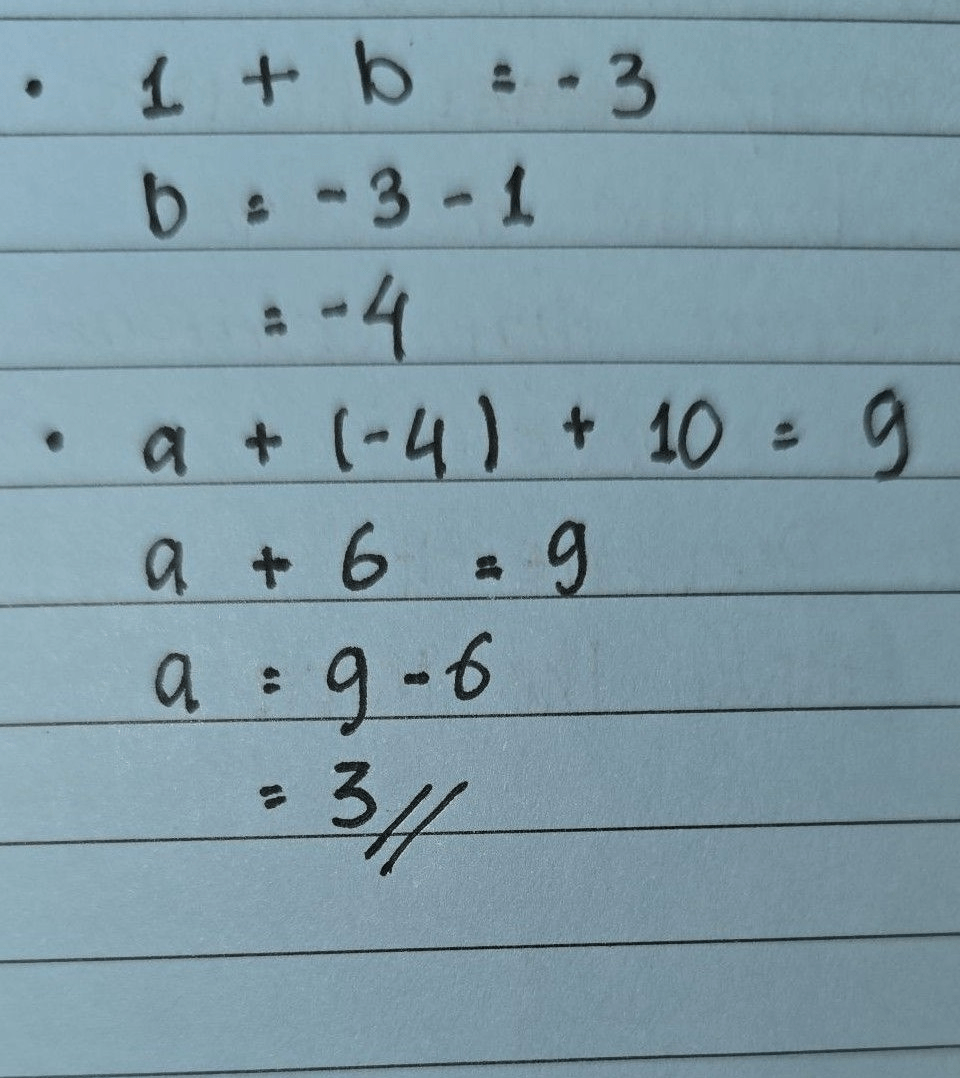 • 1 + b = -3
b = -3 - 1
= -4
• a + (-4) + 10 = 9
a + 6 = 9
a = 9 - 6
= 3 //